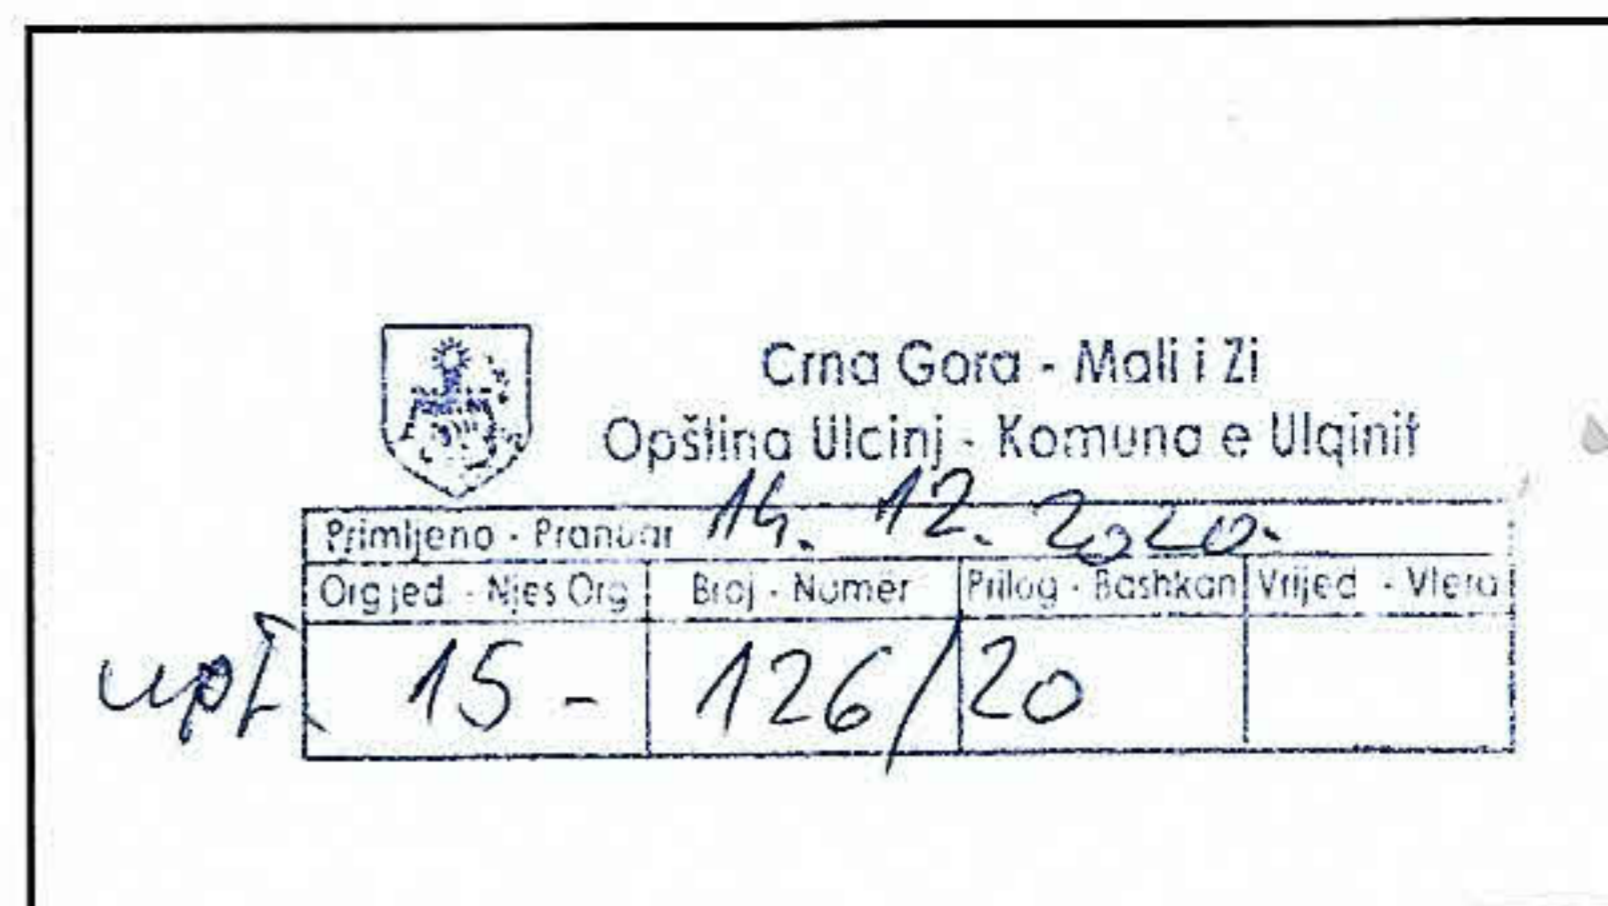 Crna Gora - Mali i Zi
Opština Ulcinj - Komuna e Ulqinit
Primljeno - Pranuar 14. 12. 2020.
Org jed. - Njes Org Broj - Numër Prilog - Bashkan Vrijed - Vlera
upI. 15 - 126/20